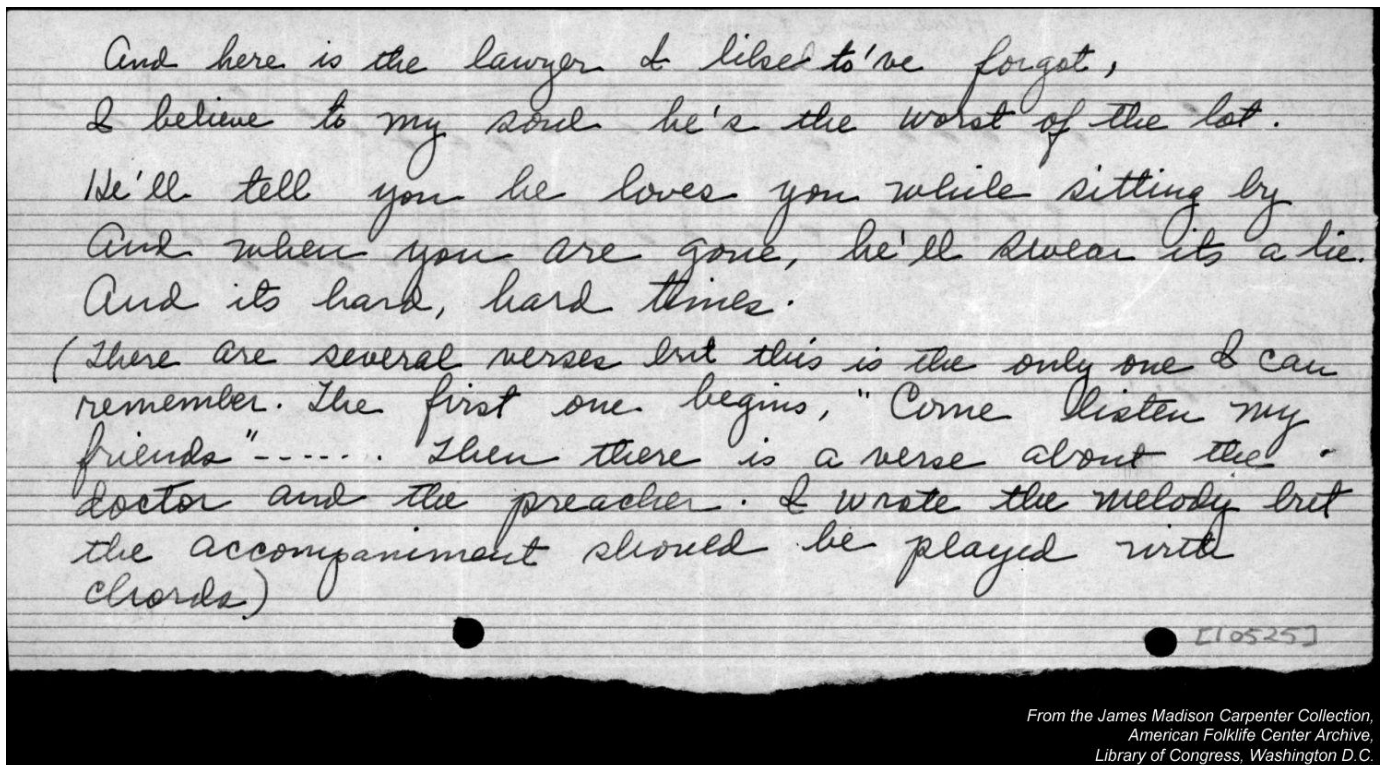 And here is the lawyer I liked to've forgot,
I believe to my soul he's the worst of the lot.
He'll tell you he loves you while sitting by
And when you are gone, he'll swear its a lie.
And its hard, hard times.
(There are several verses but this is the only one I can
remember. The first one begins, "Come listen my
friends"------. Then there is a verse about the
doctor and the preacher. I wrote the melody but
the accompaniment should be played with
chords)
[10525]
From the James Madison Carpenter Collection,
American Folklife Center Archive,
Library of Congress, Washington D.C.